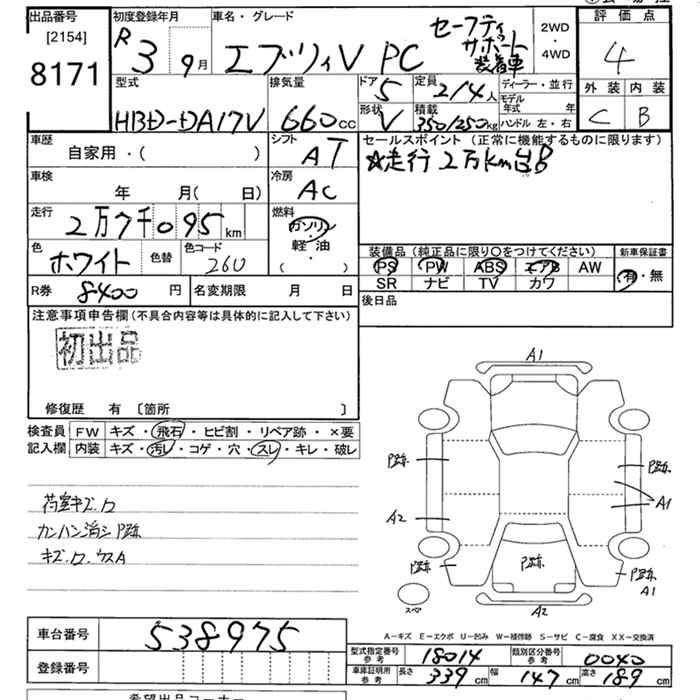 出品番号
[2154]
8171
初度登録年月
R 3 9月
車名・グレード
エブリィV PC
セーフティ
サポート
装着車
2WD
・
4WD
評価点
4
外装 内装
C B
型式
HBD-DA17V
排気量
660cc
ドア 5
定員 2/4人
ディーラー・並行
モデル年式 年
形状 V
積載 350/250kg
ハンドル 左・右
車歴
自家用・( )
シフト AT
セールスポイント (正常に機能するものに限ります)
☆走行2万km台B
車検
年 月( 日)
冷房 AC
走行 2万7千095km
燃料
ガソリン
軽油
( ・ )
色 ホワイト 色替
色コード 26U
装備品 (純正品に限り○をつけてください)
新車保証書
PS PW ABS エアB AW
有・無
SR ナビ TV カワ
R券 8400円
名変期限 月 日
後日品
注意事項申告欄(不具合内容等は具体的に記入して下さい)
初出品
修復歴 有 [箇所 ]
検査員
記入欄
FW キズ・飛石・ヒビ割・リペア跡・×要
内装 キズ・汚レ・コゲ・穴・スレ・キレ・破レ
荷室キズ.ワ
カンハン消シP跡
キズ.ワ.ウスA
A1
P跡
P跡
A1
A2
P跡
P跡
P跡
A1
スペア
A2
A-キズ E-エクボ U-凹み W-補修跡 S-サビ C-腐食 XX-交換済
車台番号 538975
登録番号
型式指定番号 参考 18014
類別区分番号 参考 0040
車庫証明用 参考 長さ 339cm 幅 147cm 高さ 189cm
希望出品コーナー